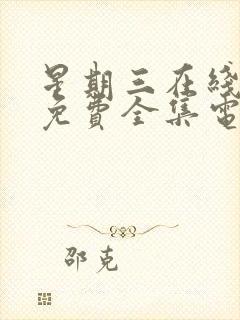 星期三在线
免费全集電
邵克